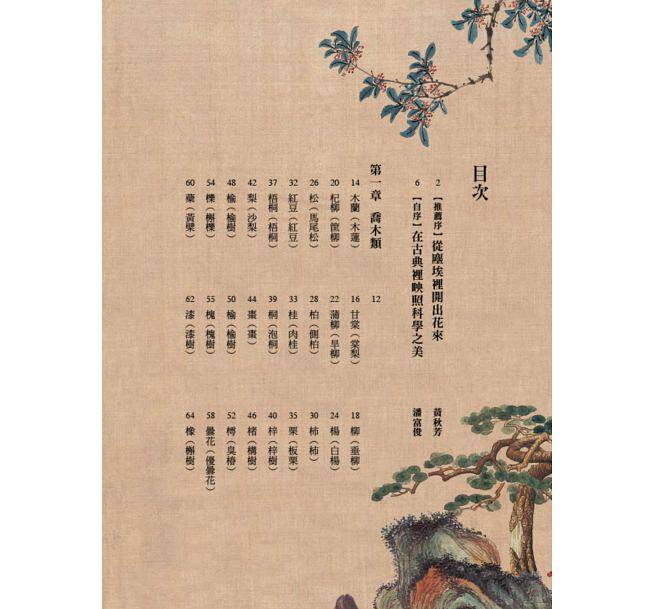 目次
2 【推薦序】從塵埃裡開出花來 黃秋芳
6 【自序】在古典裡映照科學之美 潘富俊
第一章 喬木類 12
14 木蘭（木蓮） 16 甘棠（棠梨） 18 柳（垂柳）
20 杞柳（筐柳） 22 蒲柳（旱柳） 24 楊（白楊）
26 松（馬尾松） 28 柏（側柏） 30 柿（柿）
32 紅豆（紅豆） 33 桂（肉桂） 35 栗（板栗）
37 梧桐（梧桐） 39 桐（泡桐） 40 梓（梓樹）
42 梨（沙梨） 44 棗（棗） 46 楮（構樹）
48 榆（榆樹） 50 榆（榆樹） 52 樗（臭椿）
54 櫟（槲櫟） 55 槐（槐樹） 58 曇花（優曇花）
60 蘗（黃檗） 62 漆（漆樹） 64 橡（槲樹）